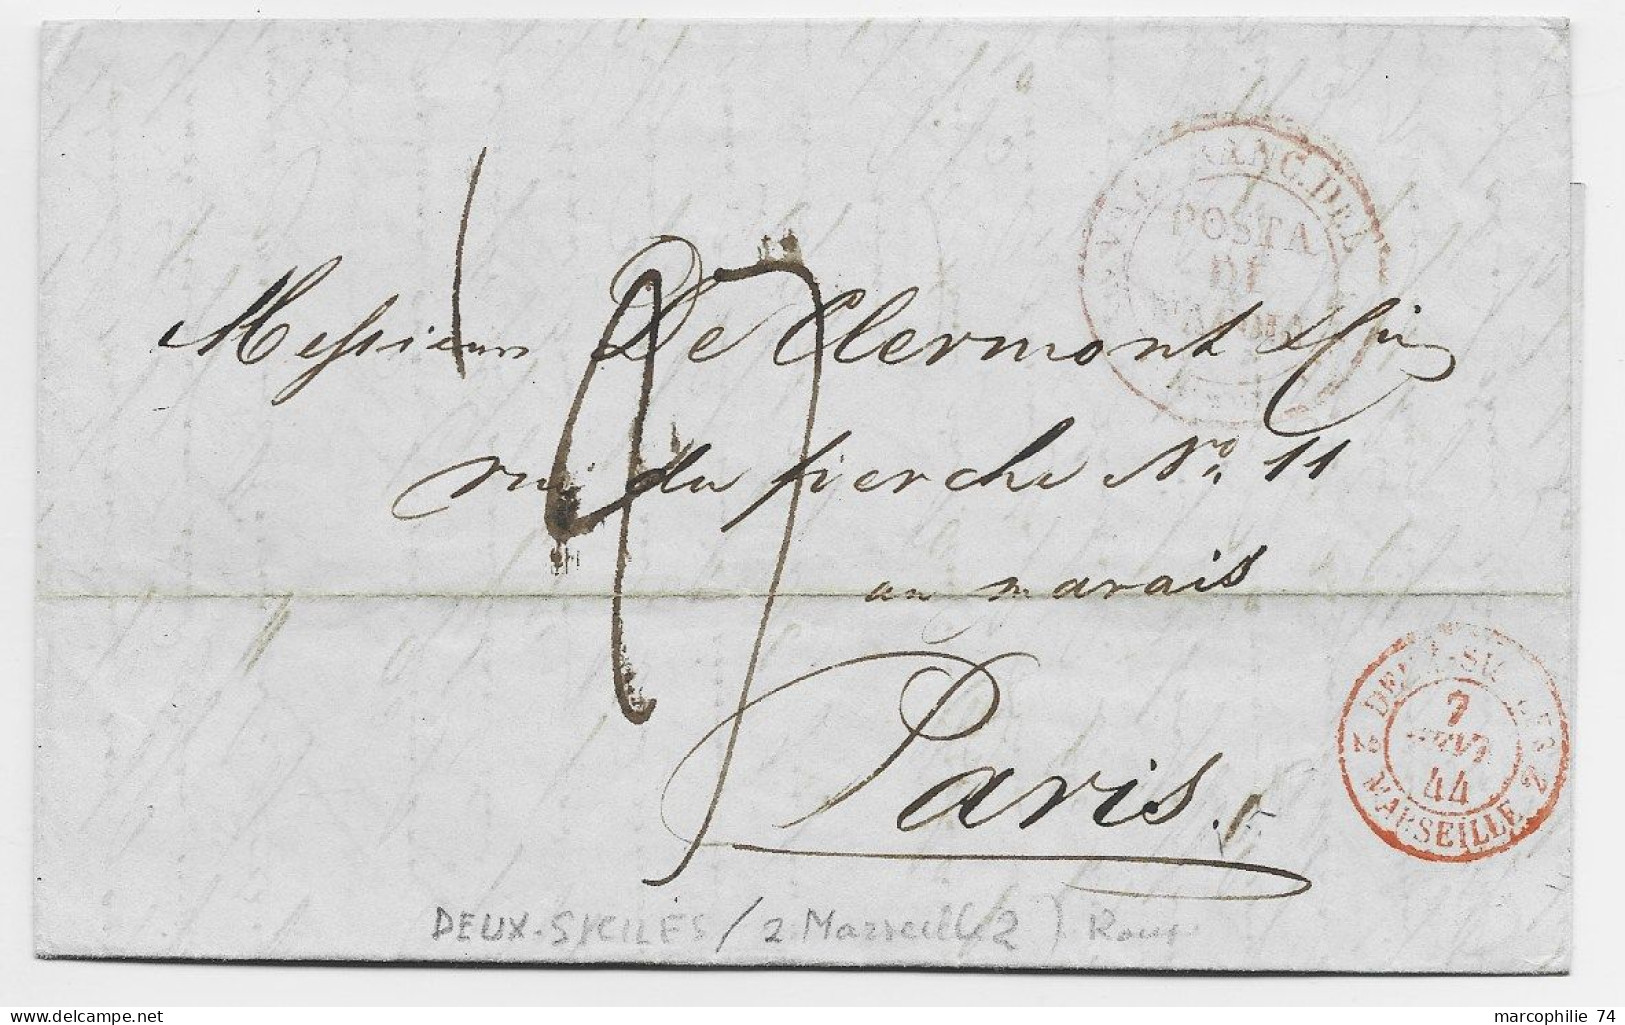 FRANC. DEL
POSTA
DI
Messieurs De Clermont &
rue du perche No. 11
au marais
Paris.
DEUX-SICILES
7
AOUT
44
2 MARSEILLE 2
DEUX-SICILES / 2 Marseille 2 ) Rouge
marcophilie 74